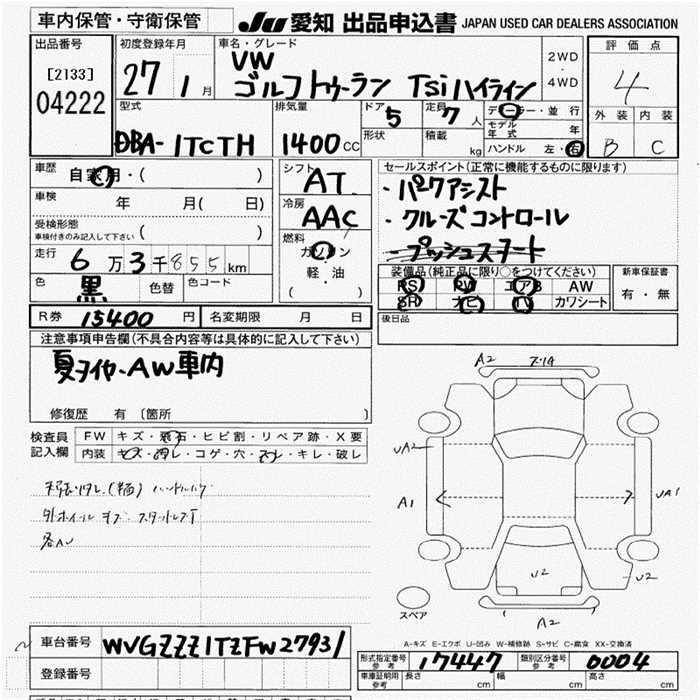 車内保管・守衛保管
JU 愛知 出品申込書 JAPAN USED CAR DEALERS ASSOCIATION
出品番号
[2133]
04222
初度登録年月
27 1 月
車名・グレード
VW
ゴルフトゥーラン TSiハイライン
2WD
・
4WD
評価点
4
型式
DBA-1TCTH
排気量
1400 CC
ドア 5
形状
定員 7 人
積載 kg
ディーラー・並行
モデル年式 年
ハンドル 左・右
外装 内装
B C
車歴 自家用・( )
車検 年 月( 日)
受検形態
車検付きのみ記入して下さい ( )
走行 6 万 3 千 855 km
色 黒 色替 色コード
シフト AT
冷房 AAC
燃料
ガソリン
・
軽・油
( )
セールスポイント(正常に機能するものに限ります)
・パークアシスト
・クルーズコントロール
プッシュスタート
装備品(純正品に限り○をつけてください)
PS PW エアB AW
SR ナビ TV カワシート
新車保証書
有・無
R券 15400 円 名変期限 月 日
後日品
注意事項申告欄(不具合内容等は具体的に記入して下さい)
夏タイヤ・AW車内
修復歴 有 〔箇所 〕
検査員
記入欄
FW キズ・飛石・ヒビ割・リペア跡・X要
内装 キズ・汚レ・コゲ・穴・スレ・キレ・破レ
外ホイールキズ スタットレス
各AU
A2
UA2
A1
UA1
U2
U2
A2
スペア
A-キズ E-エクボ U-凹み W-補修跡 S-サビ C-腐食 XX-交換済
車台番号 WVGZZZ1TZFW27931
登録番号
形式指定番号
参考
17447
類別区分番号
参考
0004
車庫証明用
参考
長さ cm 幅 cm 高さ cm